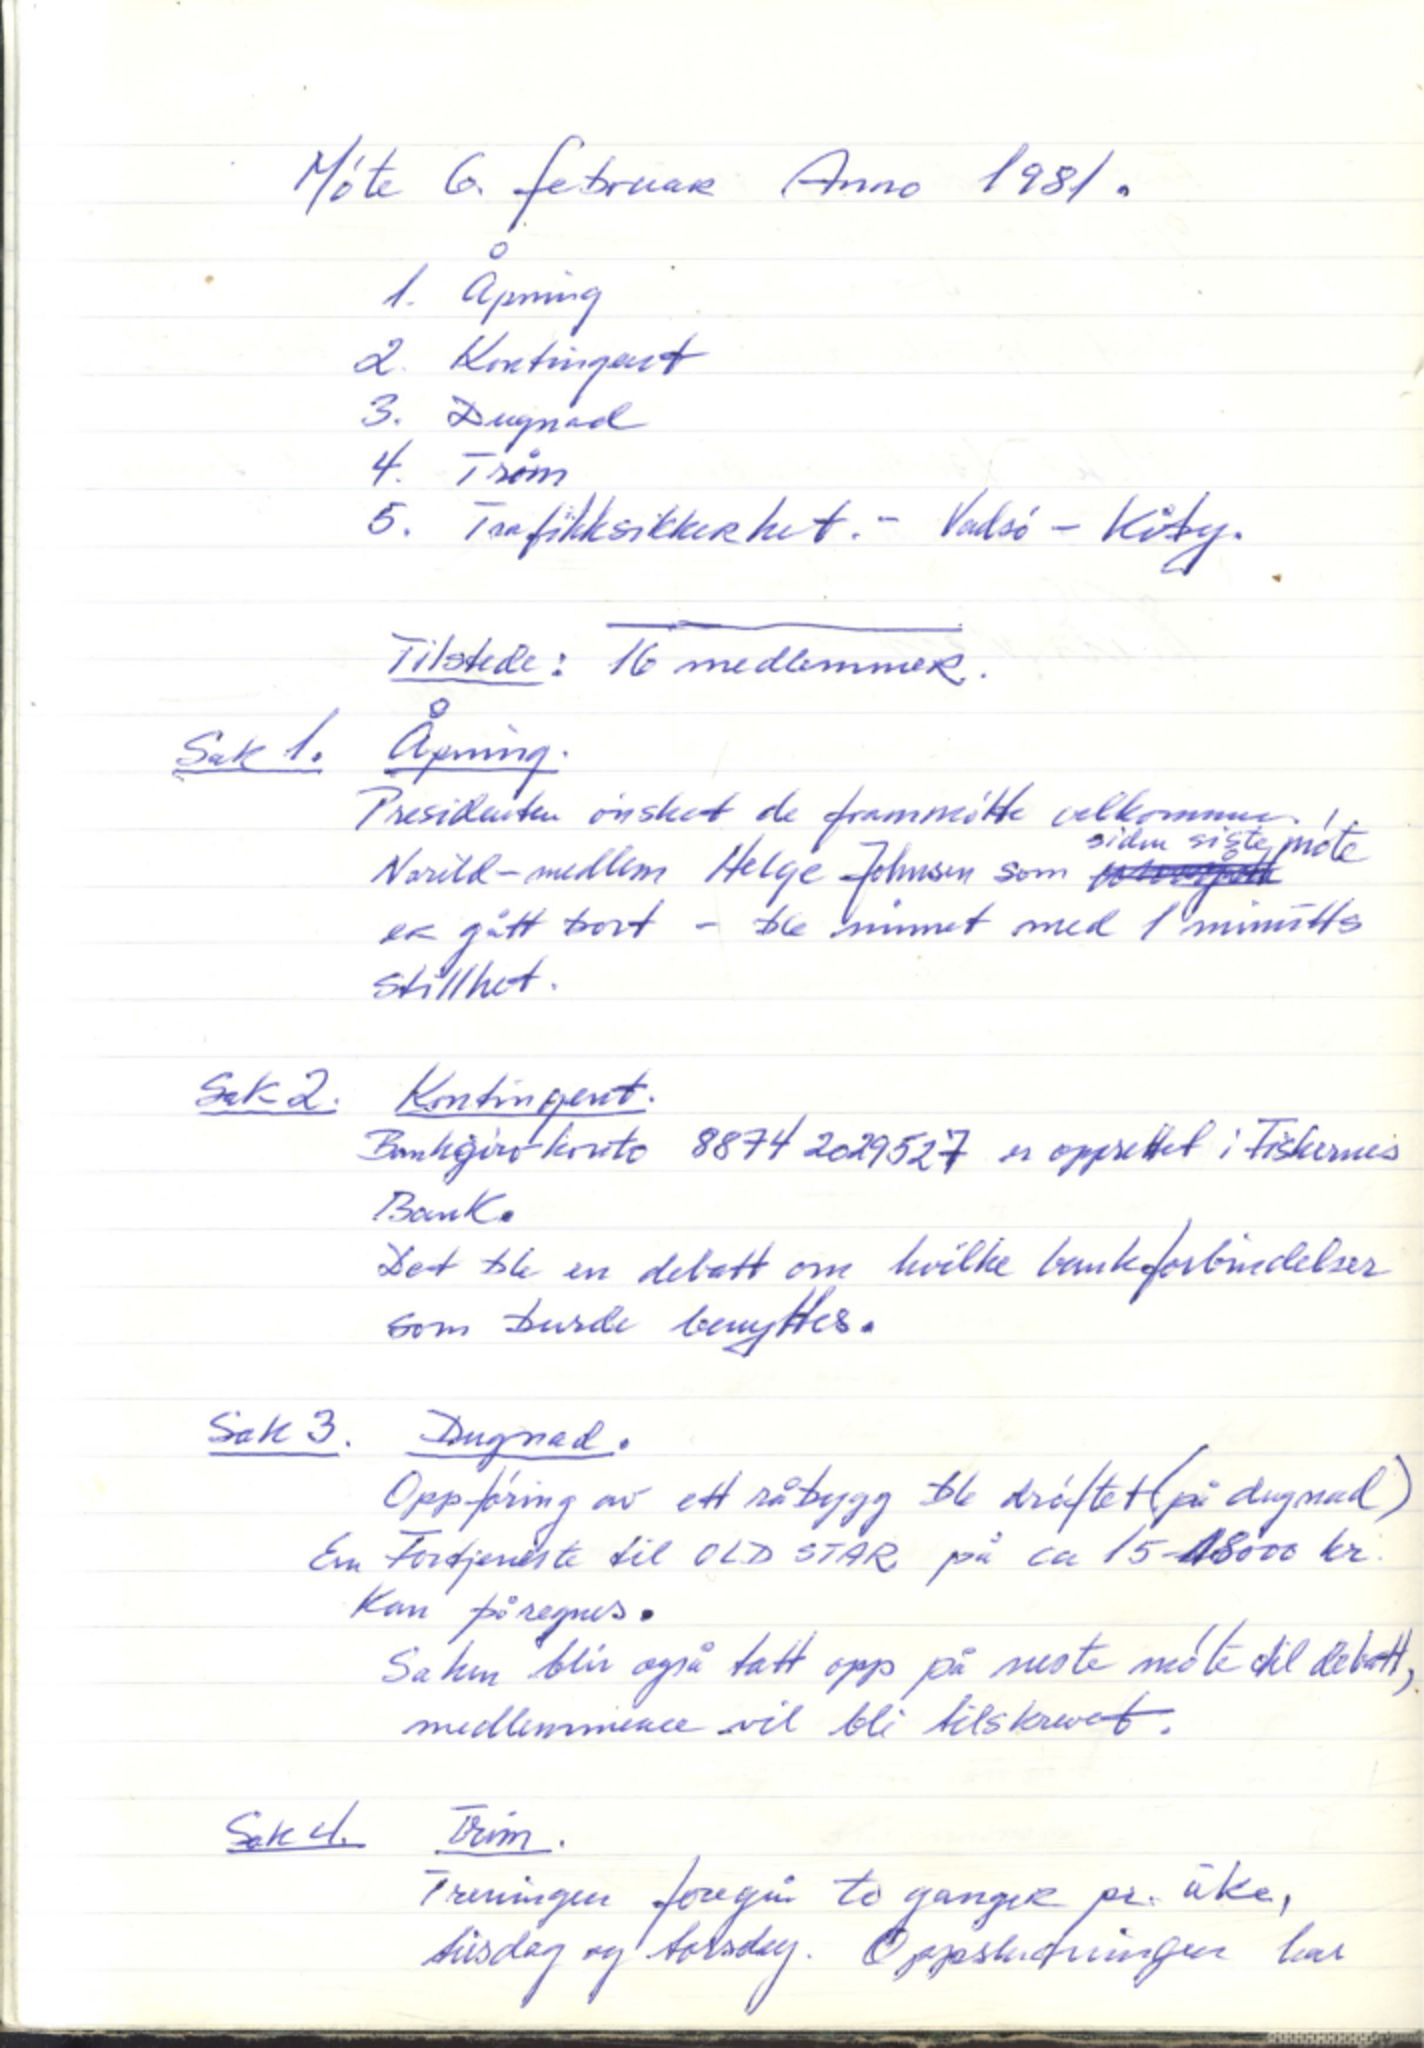 Móte 6. februar Anno 1981.
1. Åpning
2. Kontingent
3. Dugnad
4. Trim
5. Trafikksikkerhet. - Vadsó - Kiby.
Tilstede: 16 medlemmer.
Sak 1. Åpning.
Presidenten ónsket de frammótte velkommen.
siden siste móte
Narild-medlem Helge Johnsen som
er gått bort - ble minnet med 1 minutts
stillhet.
Sak 2. Kontingent.
Bankgirokonto 88742029527 er opprettet i Fiskernes
Bank.
Det ble en debatt om hvilke bankforbindelser
som burde benyttes.
Sak 3. Dugnad.
Oppfóring av ett råbygg ble dróftet (på dugnad)
En Fortjeneste til OLD STAR på ca 15-18000 kr.
Kan påregnes.
Saken blir også tatt opp på neste móte til debatt,
medlemmene vil bli tilskrevet.
Sak 4. Trim.
Treningen foregår to ganger pr. uke,
tirsdag og torsdag. Oppslutningen har